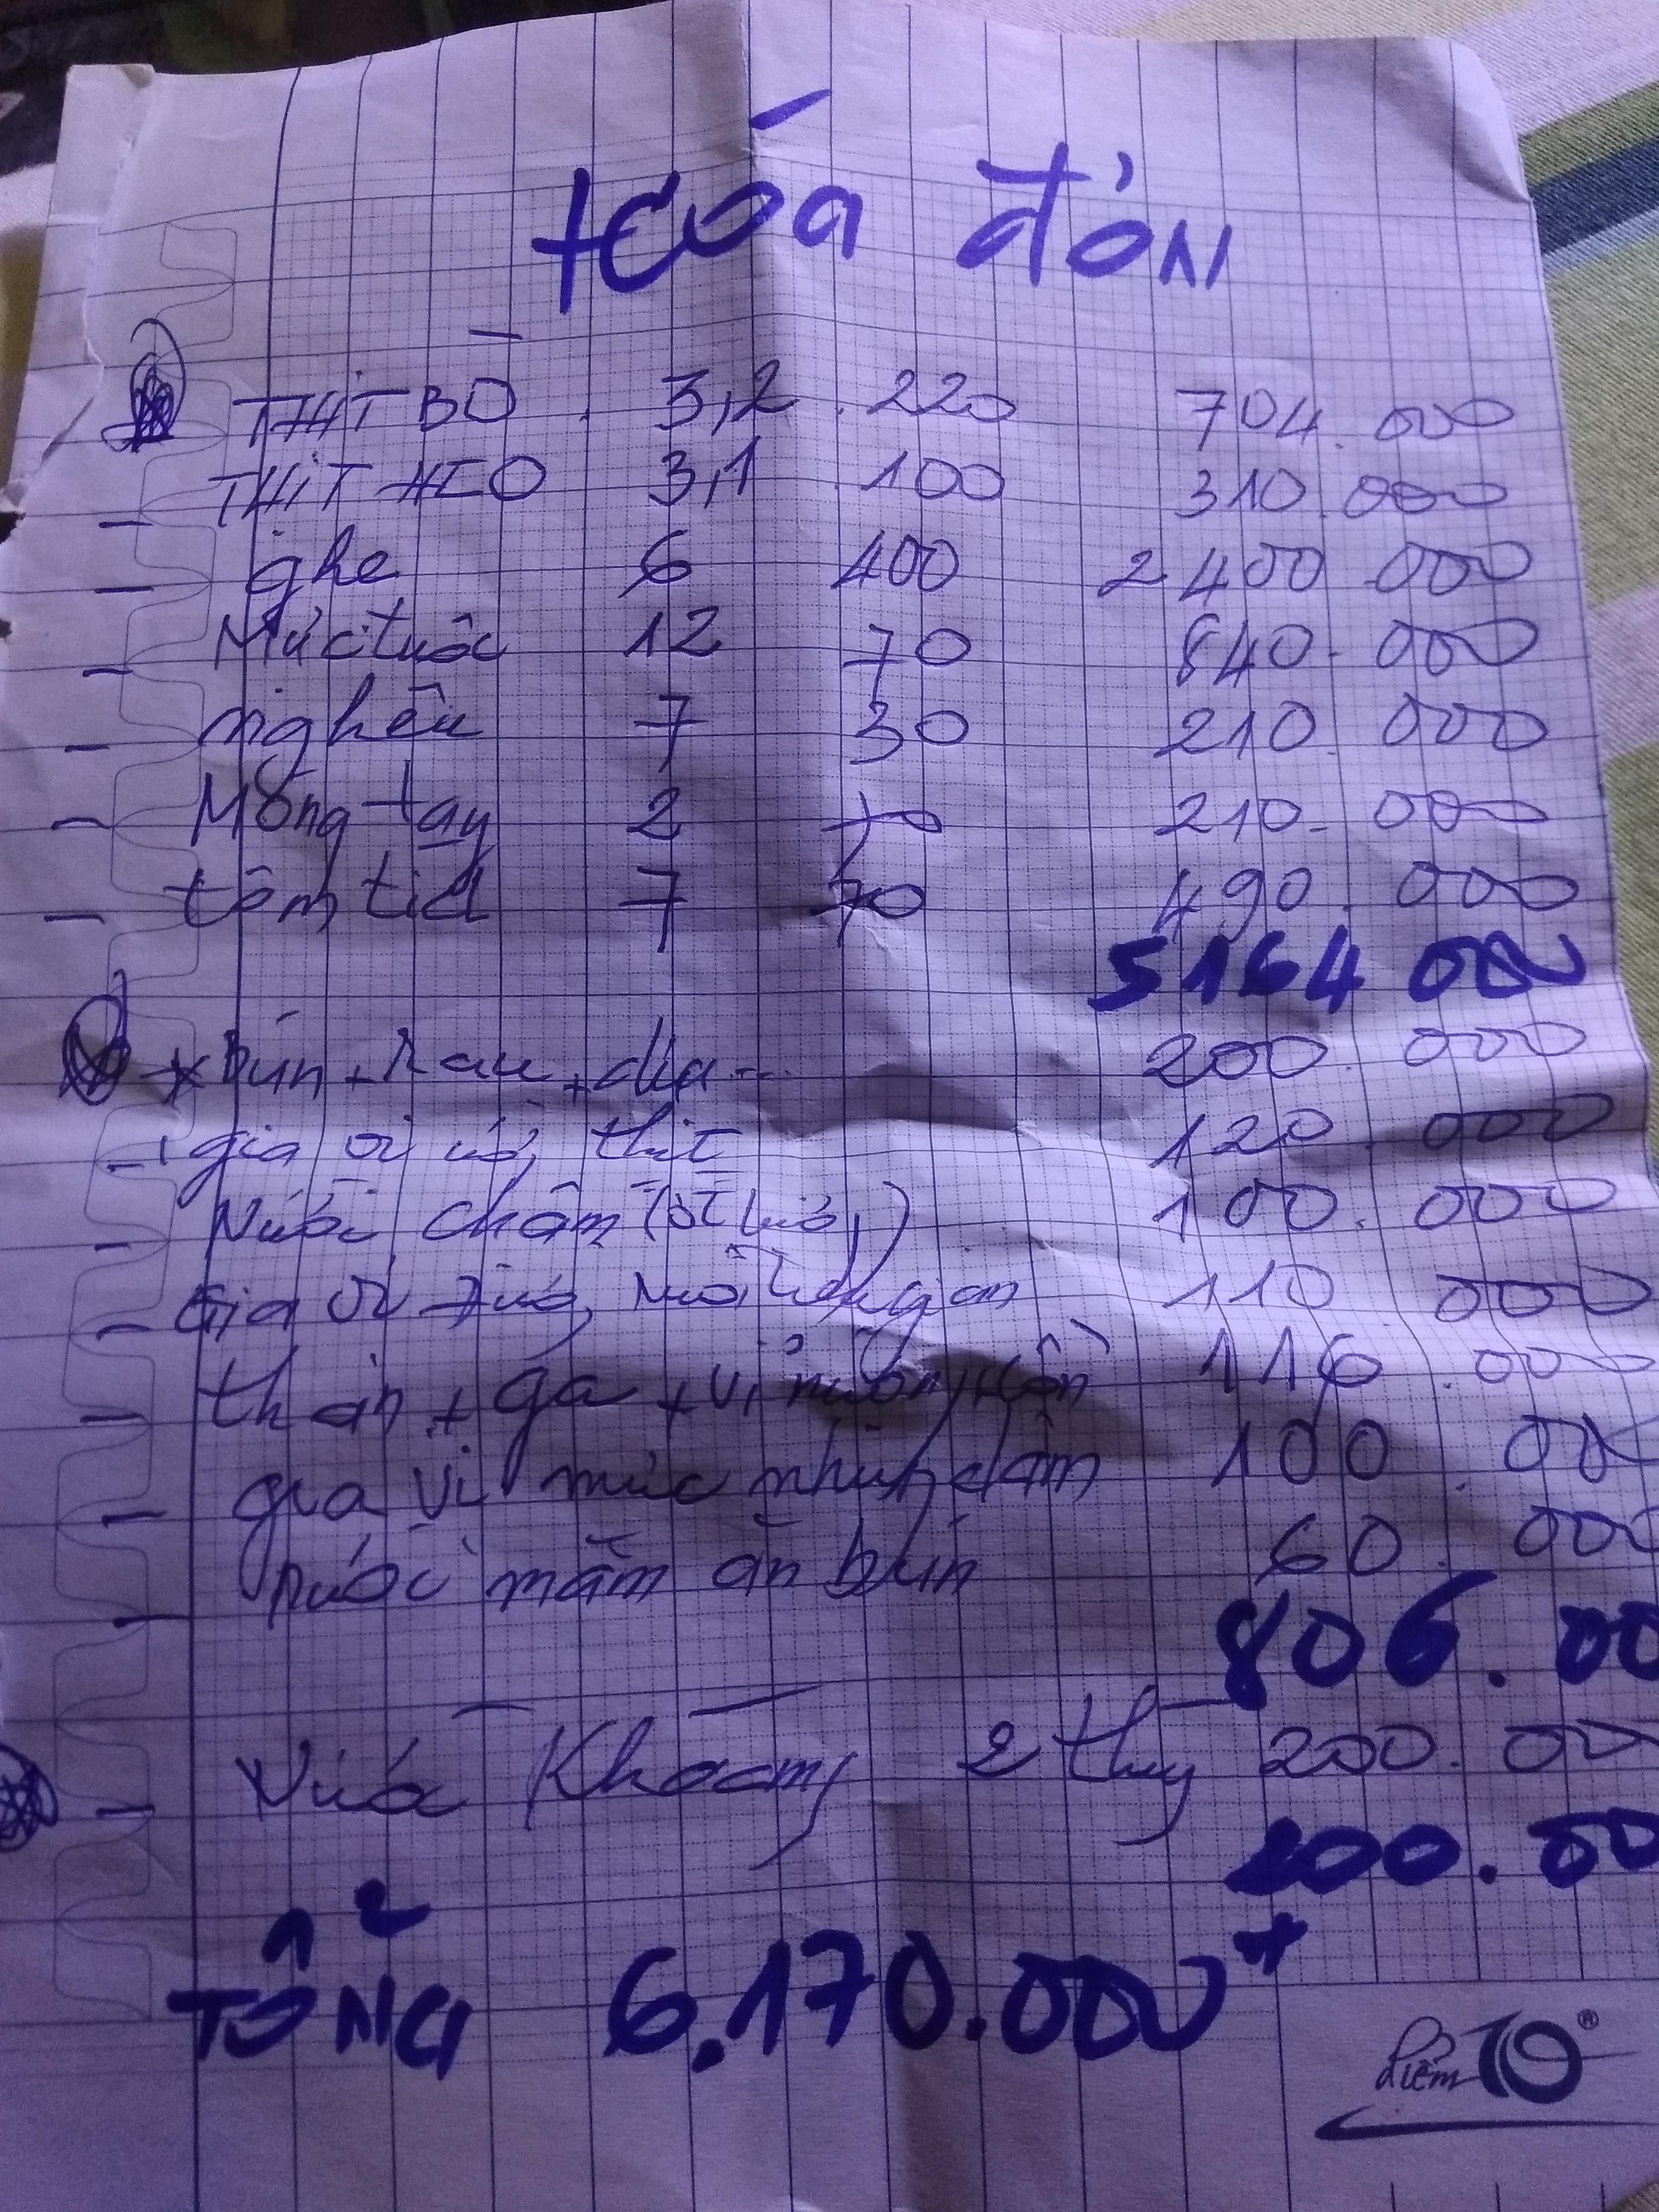 HÓA ĐƠN
THỊT BÒ 3,2 220 704.000
- THỊT HEO 3,1 100 310.000
- ghẹ 6 400 2 400 000
- Mực tuộc 12 70 840.000
- nghêu 7 30 210.000
- Móng tay 2 70 210.000
- tôm tích 7 70 490.000
5164 000
* bún + rau + dưa... 200.000
- gia vị thịt 120.000
- Nước chấm 100.000
- Gia vị 110 000
- than + ga + vỉ nướng + cồn 116.000
- gia vị mực nhúng dấm 100.00
- nước mắm ăn bún 60.000
806.00
- Nước Khoáng 2 thùng 200.00
200.00
TỔNG 6.170.000
Điểm 10®